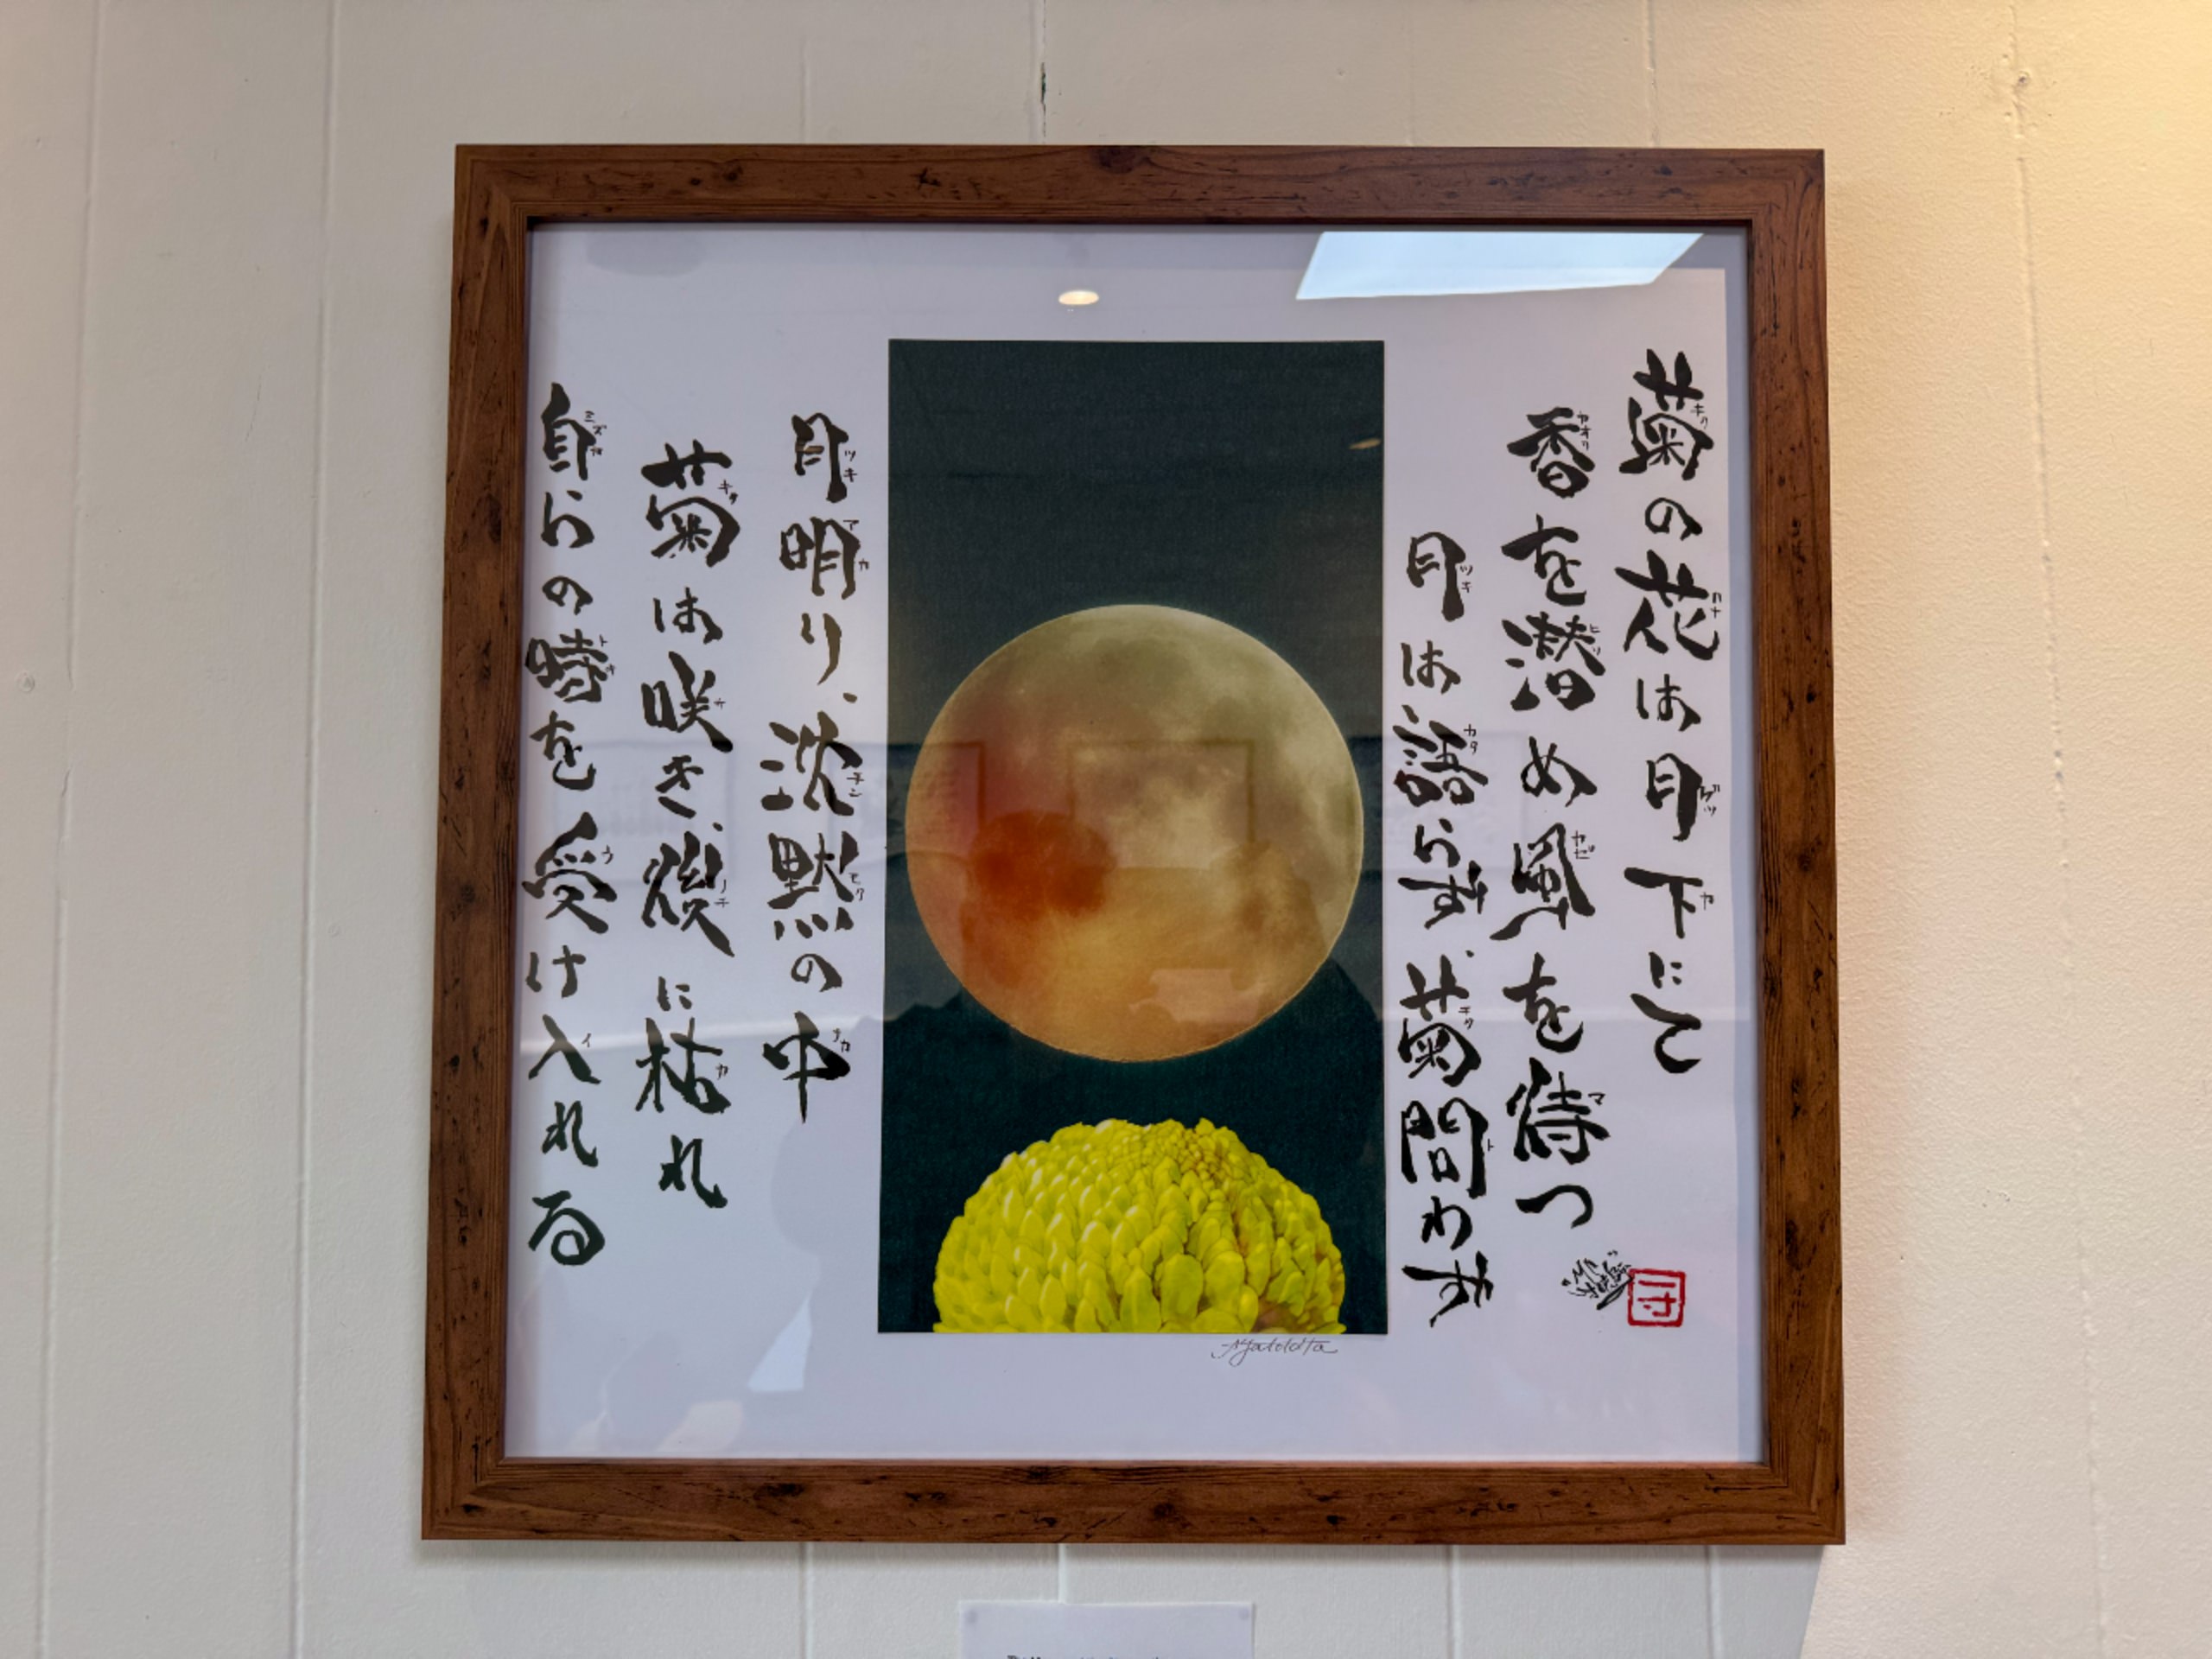 菊の花は月下にて
香を潜め風を待つ
月は語らず、菊問わず
月明り、沈黙の中
菊は咲き、後に枯れ
自らの時を受け入れる